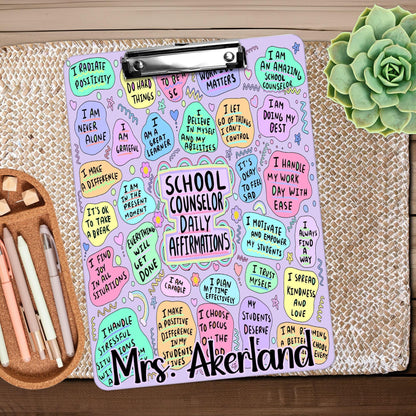 I RADIATE
POSITIVITY
DO HARD
THINGS
TO BE MY
SC
MATTERS
I AM
AN AMAZING
SCHOOL
COUNSELOR
I AM
NEVER
ALONE
I AM
GRATEFUL
I AM
A GREAT
LEARNER
I
BELIEVE
IN MYSELF
AND MY
ABILITIES
I LET
GO OF THINGS
I CAN'T
CONTROL
I AM
DOING MY
BEST
I MAKE
A DIFFERENCE
I AM
IN THE
PRESENT
MOMENT
SCHOOL
COUNSELOR
DAILY
AFFIRMATIONS
IT'S
OKAY
TO FEEL
SAD
I HANDLE
MY WORK
DAY WITH
EASE
IT'S OK
TO TAKE
A BREAK
EVERYTHING
WILL
GET
DONE
I MOTIVATE
AND EMPOWER
MY STUDENTS
I
ALWAYS
FIND
A WAY
I FIND
JOY
IN ALL
SITUATIONS
I AM
CAPABLE
I PLAN
MY TIME
EFFECTIVELY
I TRUST
MYSELF
I SPREAD
KINDNESS
AND
LOVE
I HANDLE
STRESSFUL
SITUATIONS
I MAKE
A POSITIVE
DIFFERENCE
IN MY
STUDENTS
LIVES
I CHOOSE
TO FOCUS
ON THE
MY
STUDENTS
DESERVE
I AM
A BETTER
SCHOOL
EVERY
Mrs. Akerland